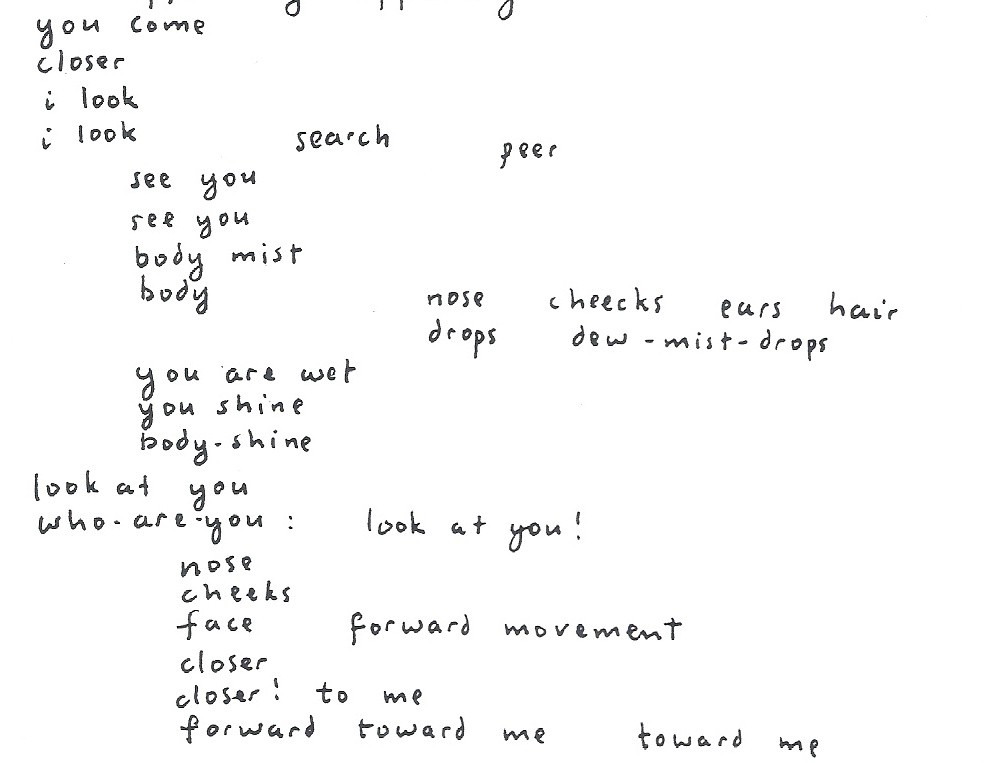 you come
closer
i look
i look search peer
see you
see you
body mist
body nose cheecks ears hair
drops dew-mist-drops
you are wet
you shine
body-shine
look at you
who-are-you : look at you!
nose
cheeks
face forward movement
closer
closer! to me
forward toward me toward me